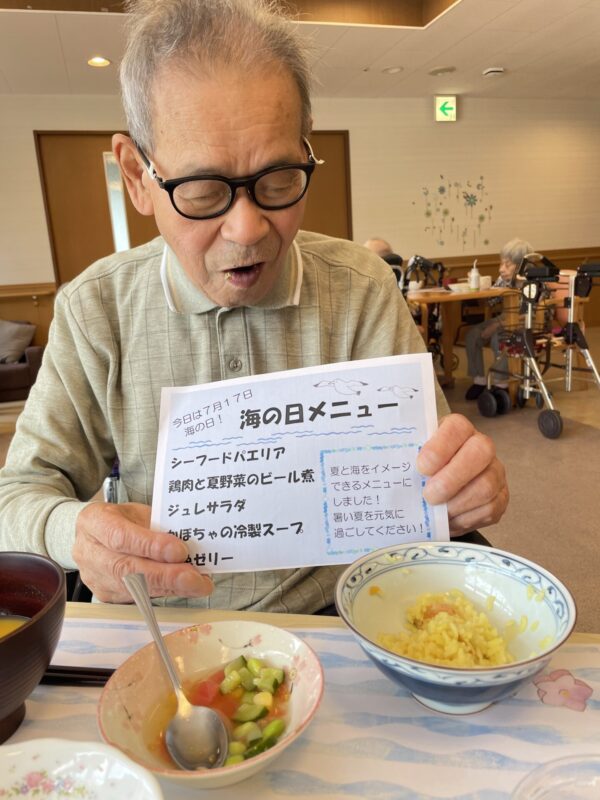 今日は7月17日
海の日！
海の日メニュー
シーフードパエリア
鶏肉と夏野菜のビール煮
ジュレサラダ
かぼちゃの冷製スープ
ゼリー
夏と海をイメージ
できるメニューに
しました！
暑い夏を元気に
過ごしてください！